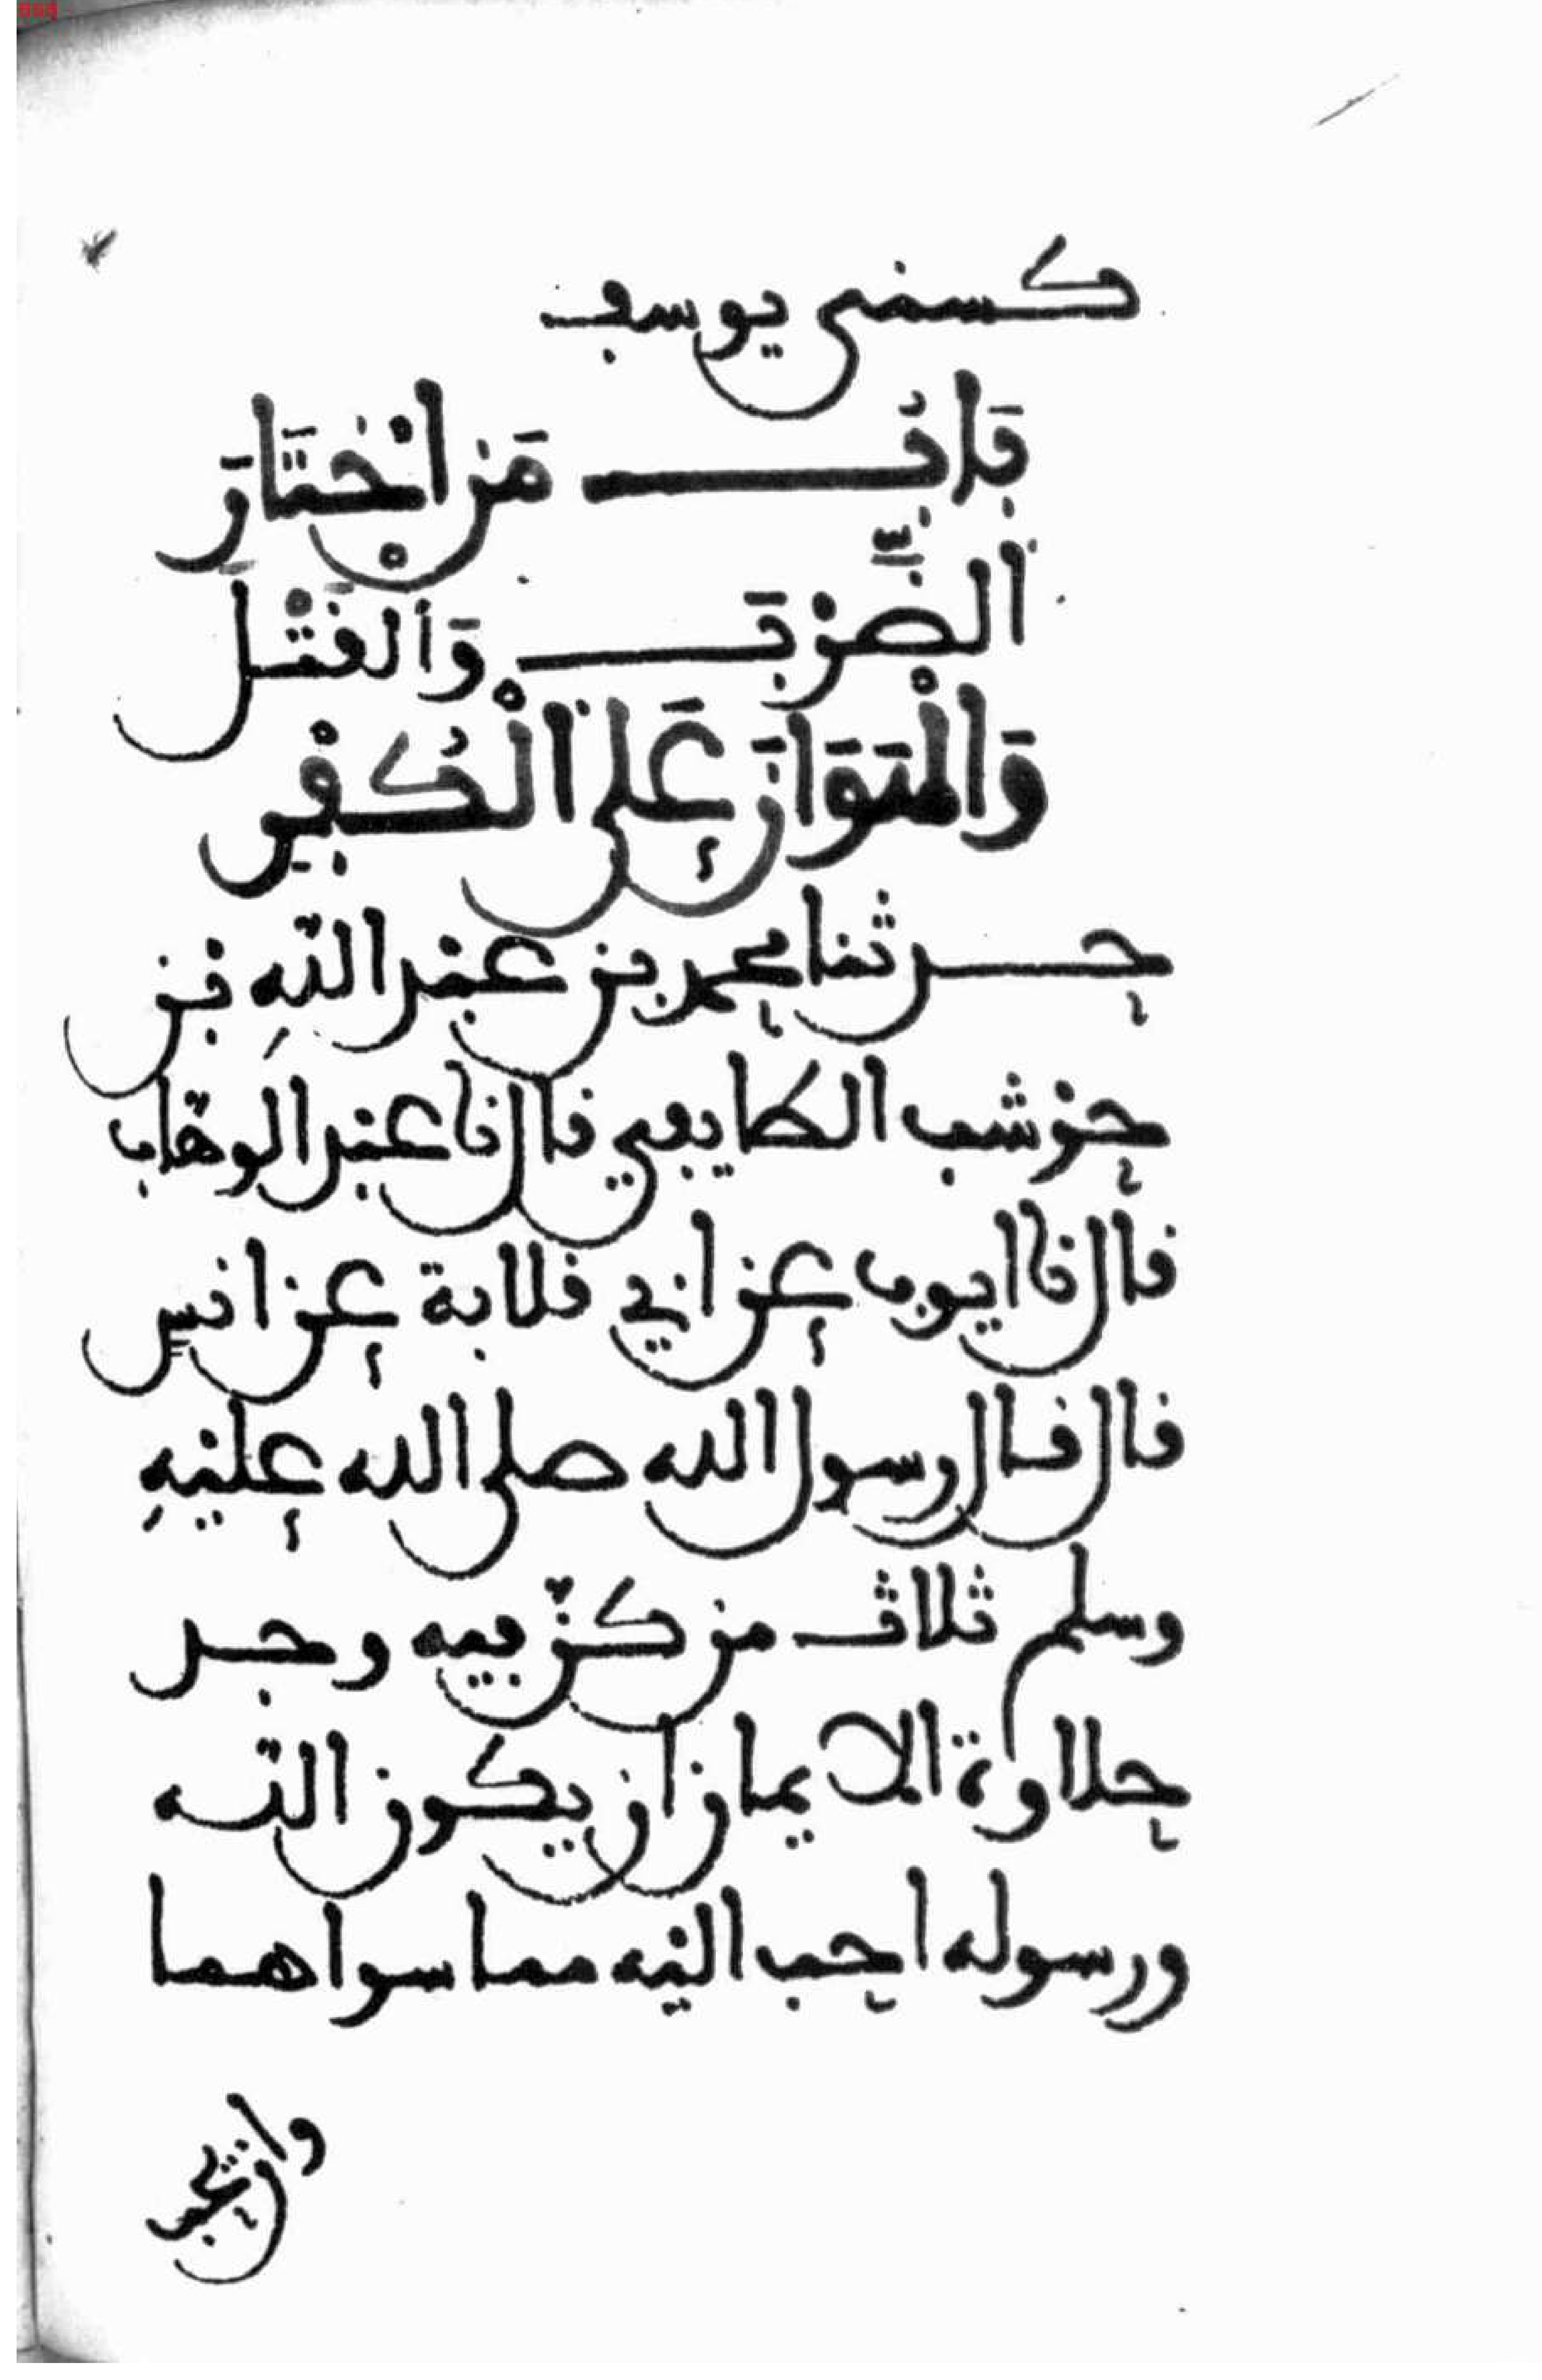 كسني يوسف
بَابُ مَنِ اخْتَارَ
الضَّرْبَ وَالْقَتْلَ
وَالْهَوَانَ عَلَى الْكُفْرِ
حدثنا محمد بن عبد اللّهِ بن
حوشب الطايفي قال نا عبد الوهّاب
قال نا ايوب عن ابي قلابة عن انس
قال قال رسول الله صلى الله عليهِ
وسلم ثلاث من كنّ فيه وجد
حلاوة الايمان ان يكون اللّه
ورسوله احب اليه مما سواهما
وان يحب